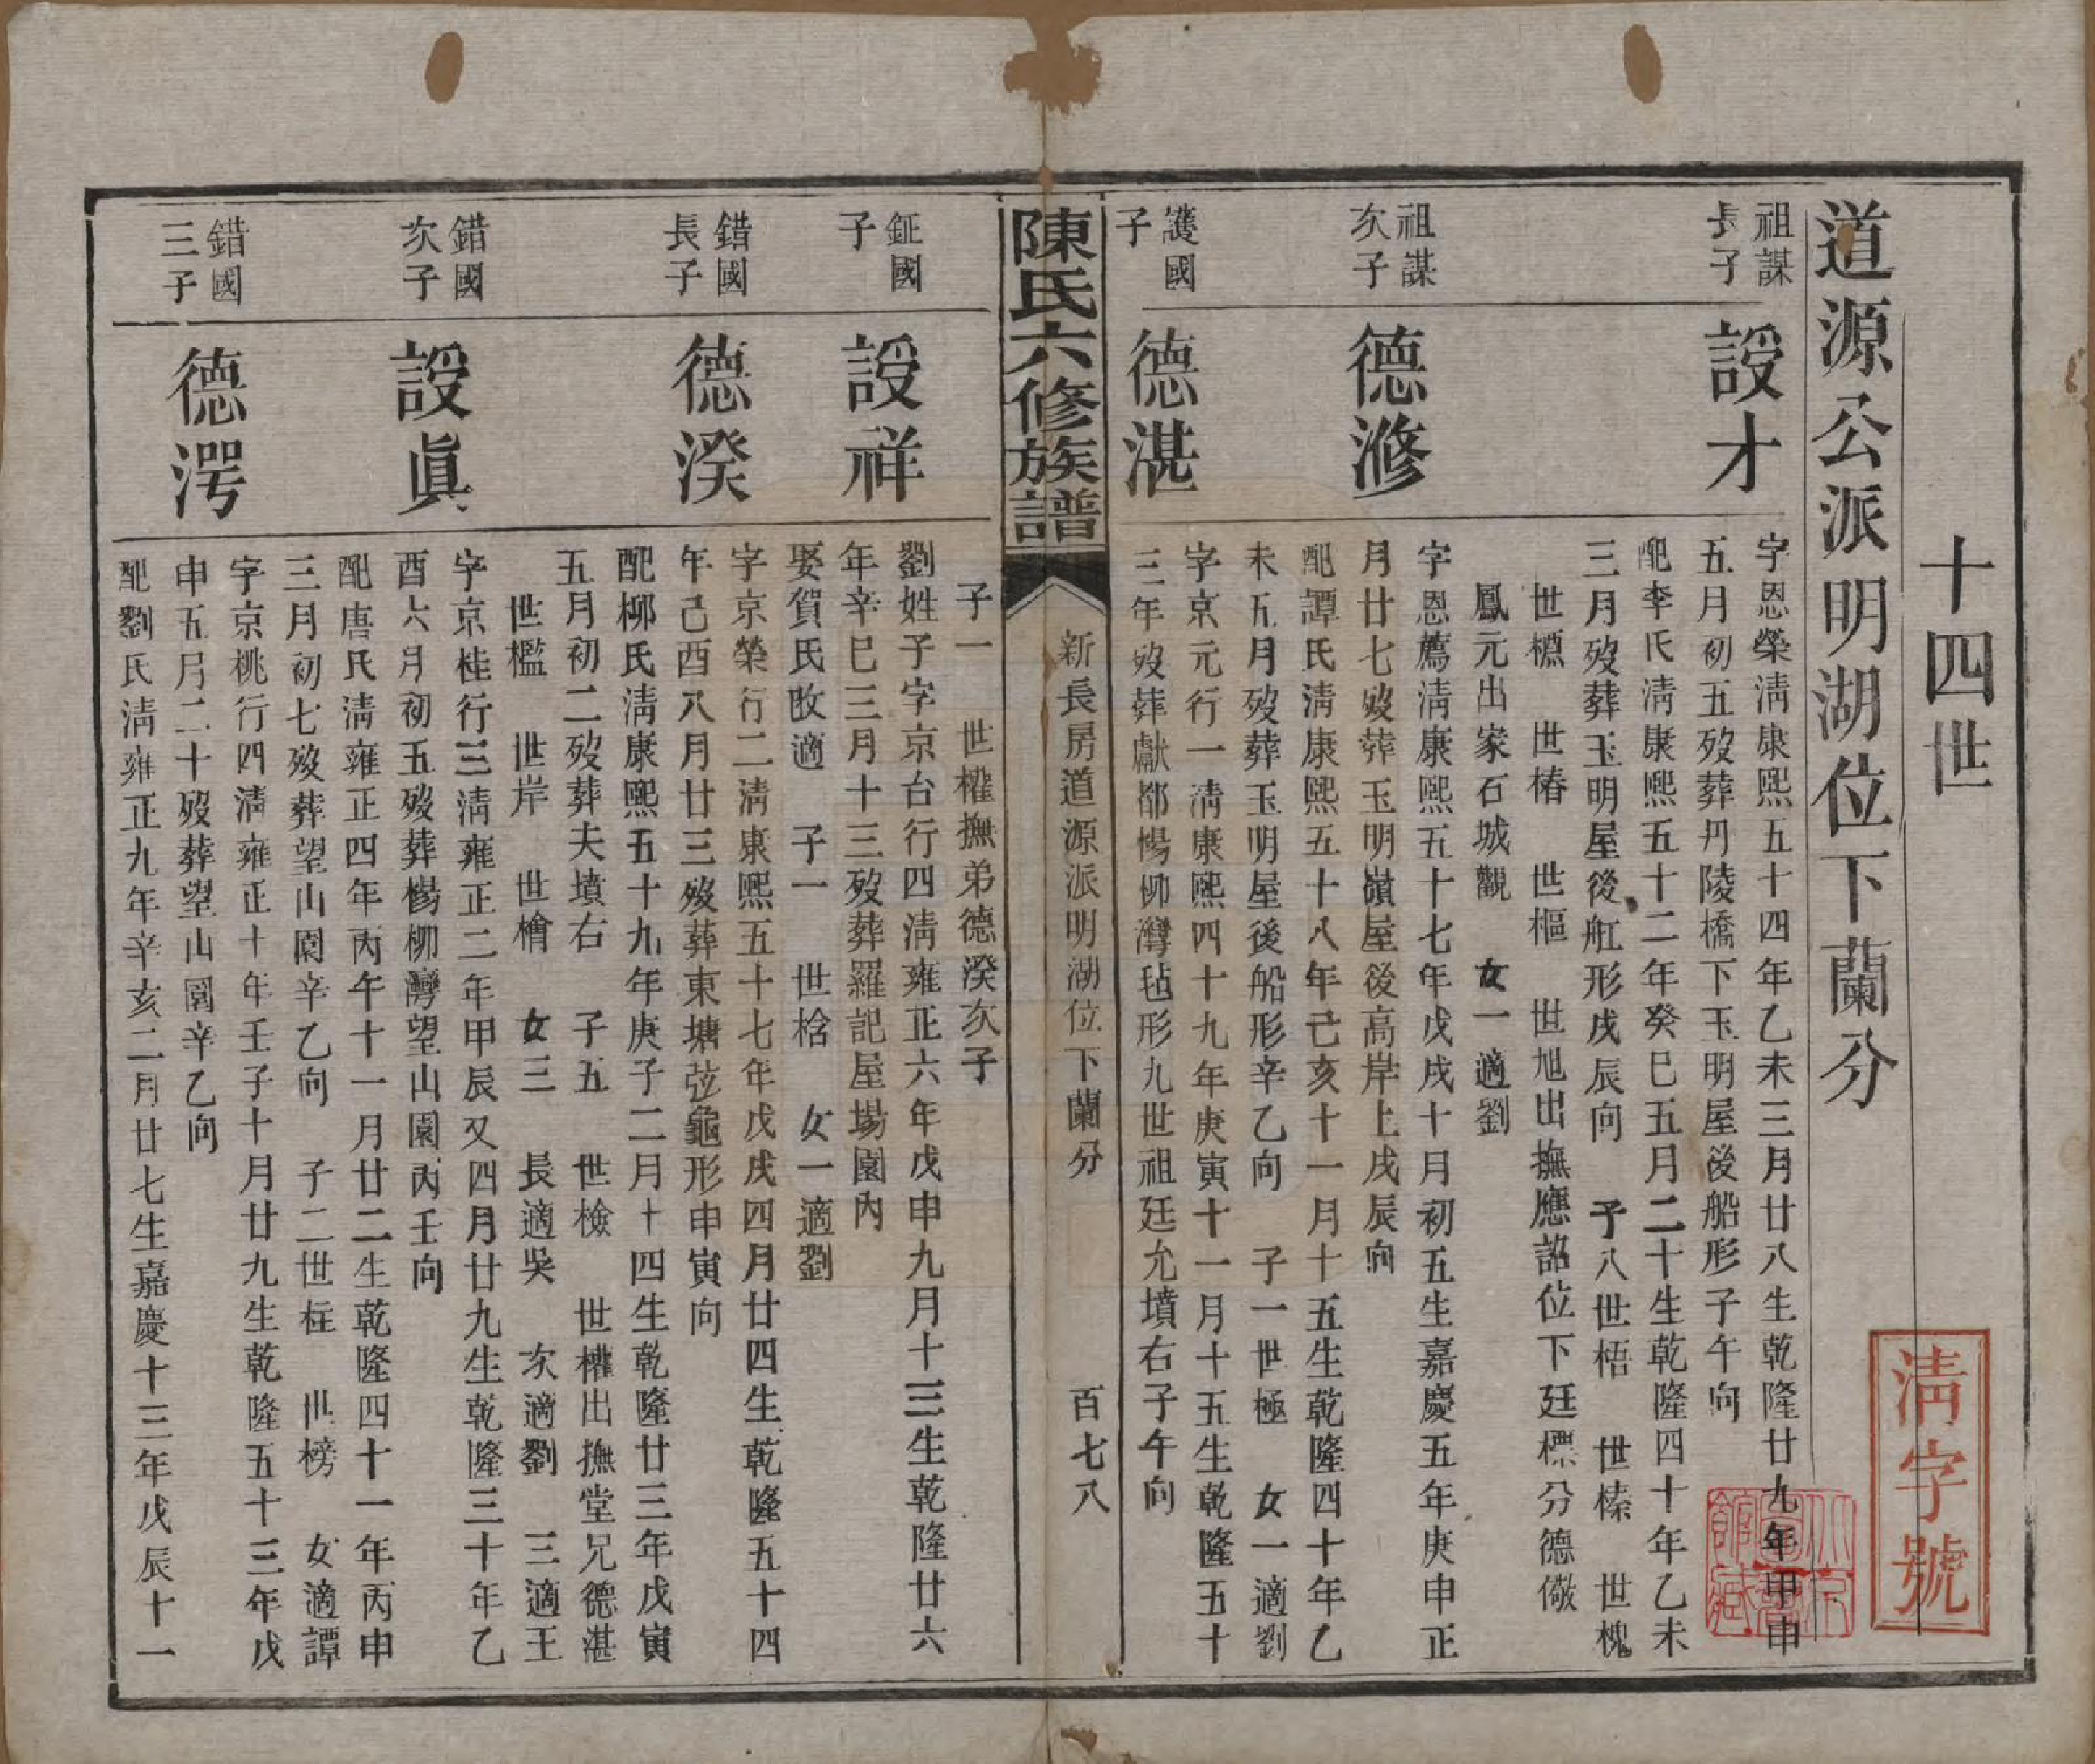 十四世
淸字號
道源公派明湖位下蘭分
祖謀
長子
設才
字恩榮淸康熙五十四年乙未三月廿八生乾隆廿九年甲申
五月初五歿葬丹陵橋下玉明屋後船形子午向
配李氏淸康熙五十二年癸巳五月二十生乾隆四十年乙未
三月歿葬玉明屋後舡形戌辰向 子八世梧 世榛 世槐
世櫄 世椿 世樞 世旭出撫應詔位下廷標分德儆
鳳元出家石城觀 女一適劉
祖謀
次子
德滫
字恩薦淸康熙五十七年戊戌十月初五生嘉慶五年庚申正
月廿七歿葬玉明嶺屋後高岸上戌辰向
配譚氏淸康熙五十八年己亥十一月十五生乾隆四十年乙
未五月歿葬玉明屋後船形辛乙向 子一世極 女一適劉
護國
子
德湛
字京元行一淸康熙四十九年庚寅十一月十五生乾隆五十
三年歿葬獻都楊柳灣毡形九世祖廷允墳右子午向
陳氏六修族譜
新長房道源派明湖位下蘭分
百七八
子一 世權撫弟德湀次子
鉦國
子
設祥
劉姓子字京台行四淸雍正六年戊申九月十三生乾隆廿六
年辛巳三月十三歿葬羅記屋場園內
娶賀氏改適 子一 世梒 女一適劉
錯國
長子
德湀
字京榮行二淸康熙五十七年戊戌四月廿四生乾隆五十四
年己酉八月廿三歿葬東塘弦龜形申寅向
配柳氏淸康熙五十九年庚子二月十四生乾隆廿三年戊寅
五月初二歿葬夫墳右 子五 世檢 世權出撫堂兄德湛
世檻 世岸 世檜 女三 長適吳 次適劉 三適王
錯國
次子
設眞
字京桂行三淸雍正二年甲辰又四月廿九生乾隆三十年乙
酉六月初五歿葬楊柳灣望山園丙壬向
配唐氏淸雍正四年丙午十一月廿二生乾隆四十一年丙申
三月初七歿葬望山園辛乙向 子二世枉 世榜 女適譚
錯國
三子
德湂
字京桃行四淸雍正十年壬子十月廿九生乾隆五十三年戊
申五月二十歿葬望山園辛乙向
配劉氏淸雍正九年辛亥二月廿七生嘉慶十三年戊辰十一